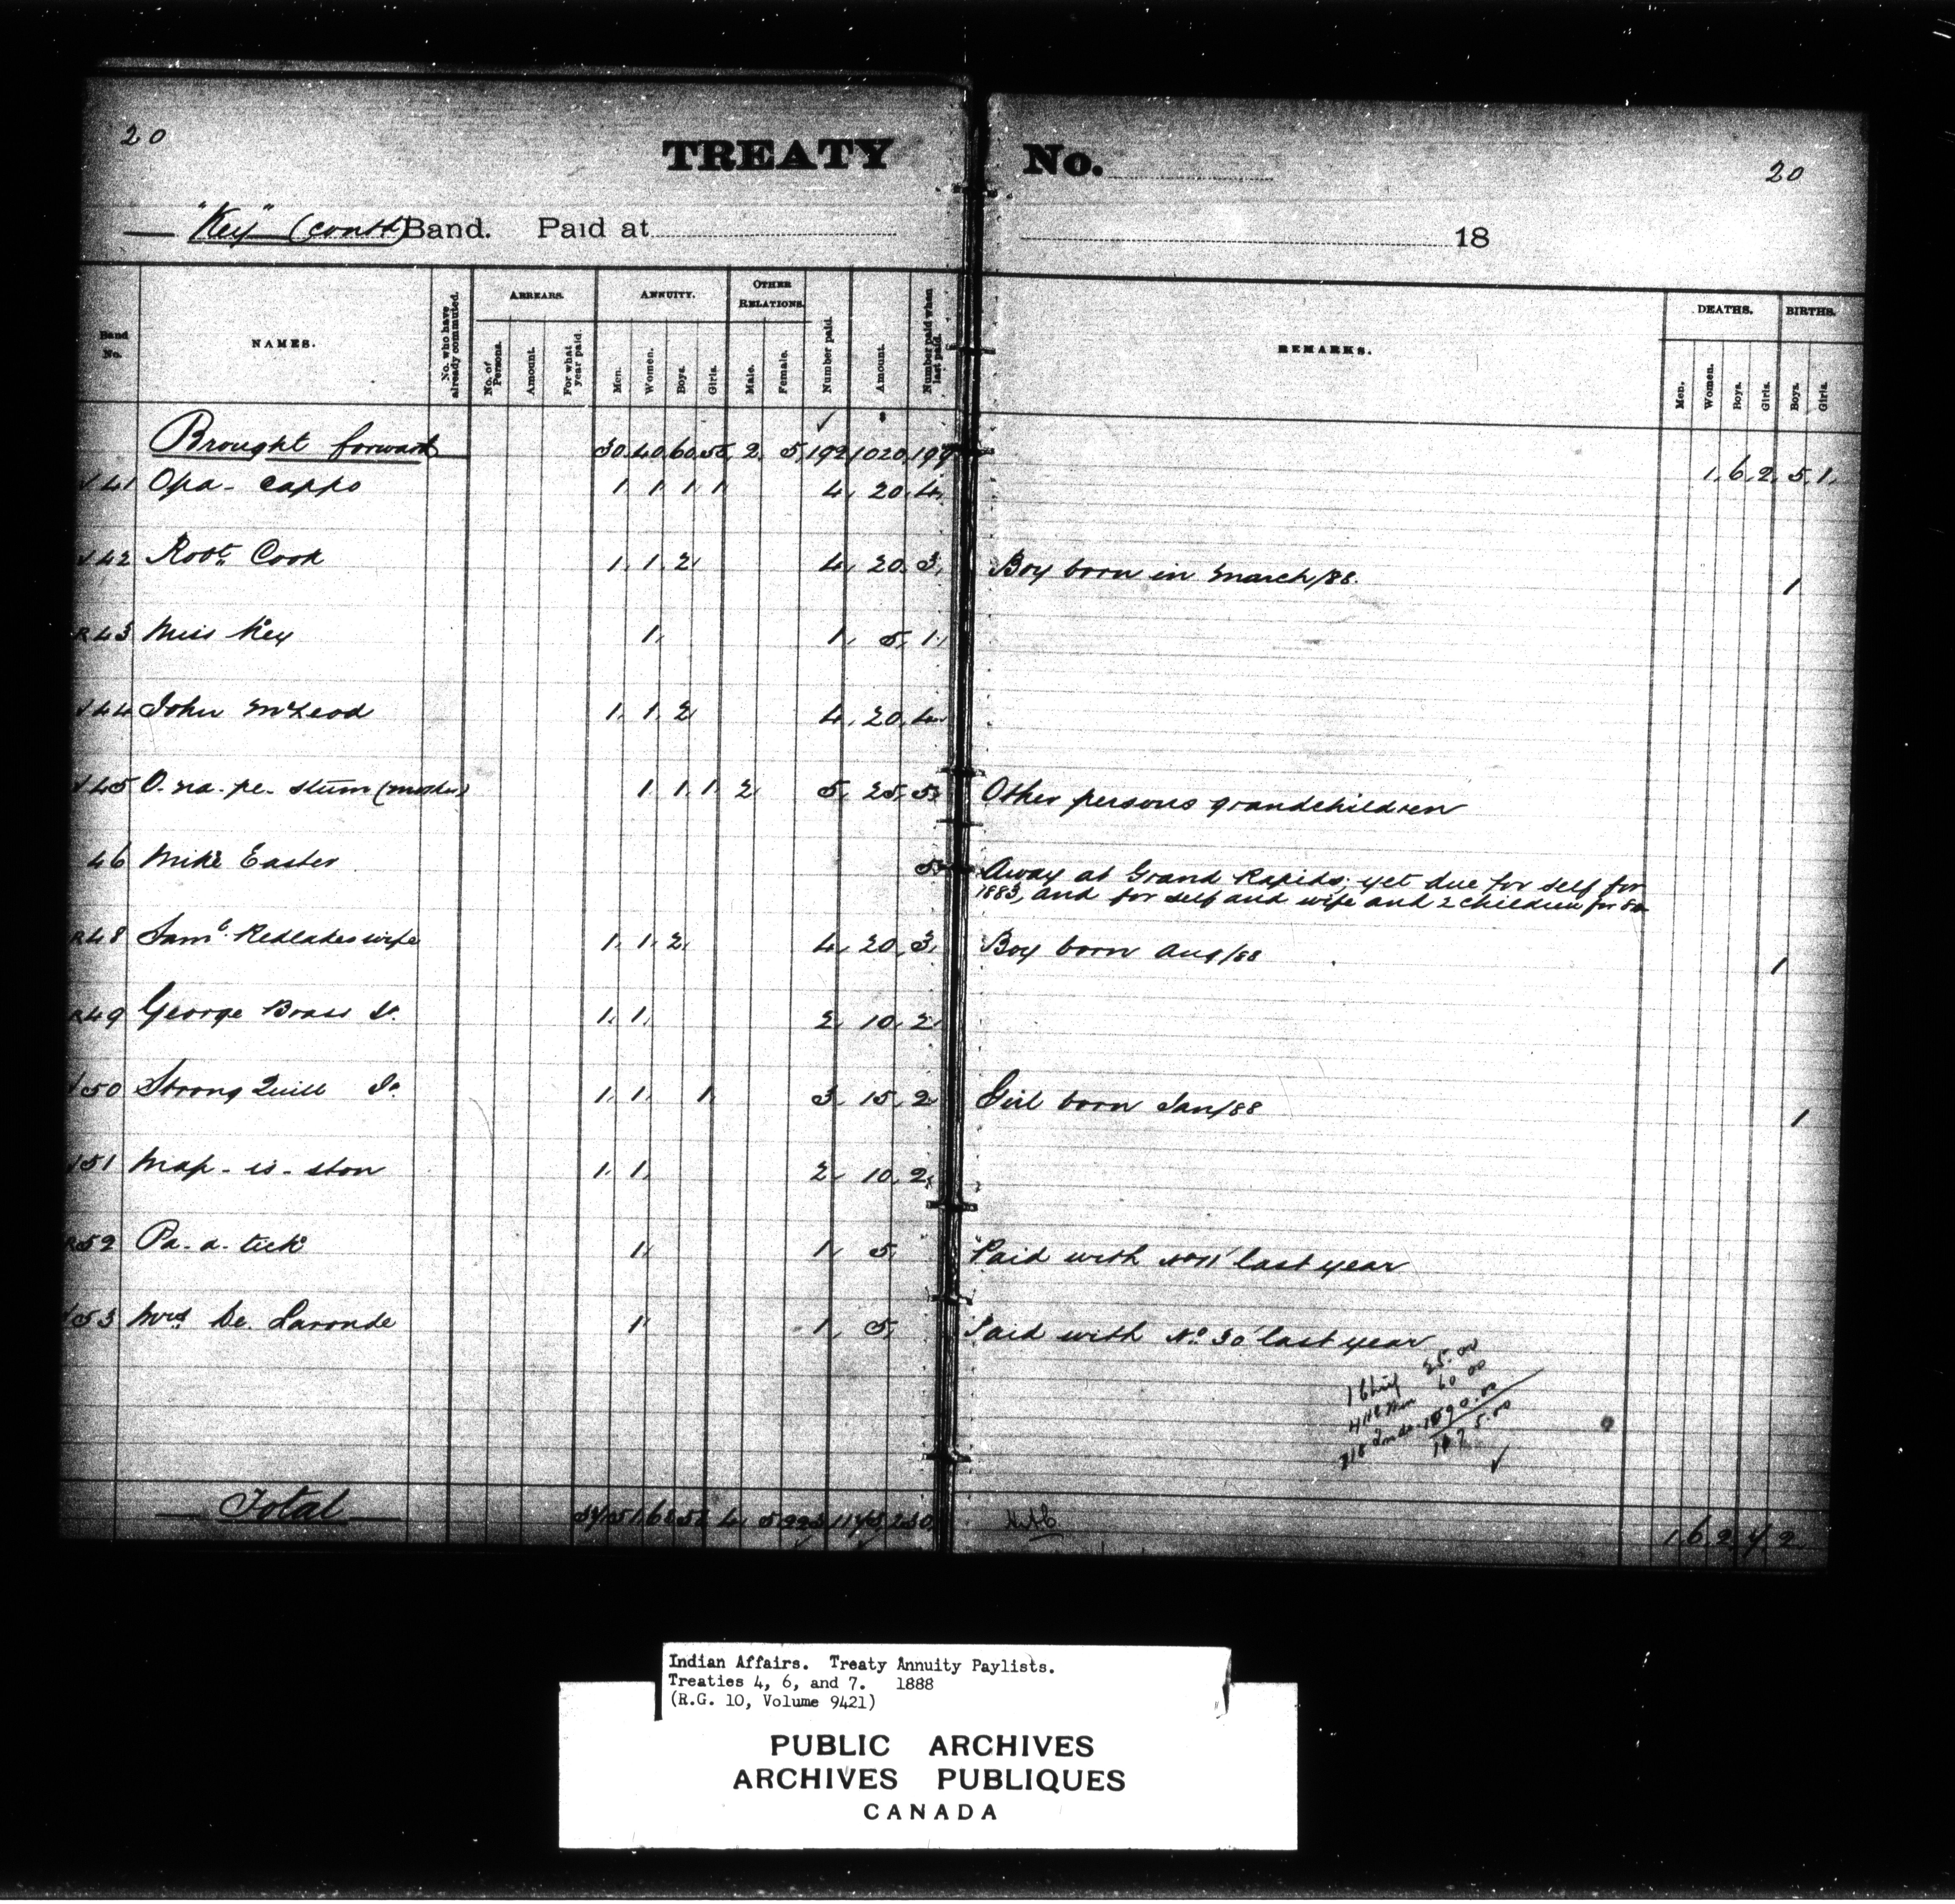 20
TREATY No.
20
"Key" (contd) Band. Paid at
18
Band No.
NAMES.
No. who have already commuted.
ARREARS.
No. of Persons.
Amount.
For what year paid.
ANNUITY.
Men.
Women.
Boys.
Girls.
OTHER RELATIONS.
Male.
Female.
Number paid.
Amount.
Number paid when last paid.
REMARKS.
DEATHS.
Men.
Women.
Boys.
Girls.
BIRTHS.
Boys.
Girls.
Brought forward 30 40 60 55 2 5 192 1020 199 1 6 2 5 1
41 Opa-cappo 1 1 1 1 4 20 4
42 Robt. Cook 1 1 2 4 20 3 Boy born in March/88. 1
R43 Miss Key 1 1 5 1
44 John McLeod 1 1 2 4 20 4
45 O-na-pe-stum (mother) 1 1 1 2 5 25 5 Other persons grandchildren
46 Mike Easter 5 Away at Grand Rapids; yet due for self for
1883, and for self and wife and 2 children for
R48 Saml. Redlakes wife 1 1 2 4 20 3 Boy born Aug/88 1
R49 George Brass Sr. 1 1 2 10 2
50 Strong Quill Jr. 1 1 1 3 15 2 Girl born Jan/88 1
51 Map-is-ston 1 1 2 10 2
R52 Pa-a-tick 1 1 5 Paid with No 11 last year
53 Mrs. De. Laronde 1 1 5 Paid with No. 30 last year
1 Chief 25.00
4 H Men 60 00
218 Inds. 1090.00
1175.00
Total 37 51 68 58 4 5 223 1175 230 1 6 2 7 2
Indian Affairs. Treaty Annuity Paylists.
Treaties 4, 6, and 7. 1888
(R.G. 10, Volume 9421)
PUBLIC ARCHIVES
ARCHIVES PUBLIQUES
CANADA